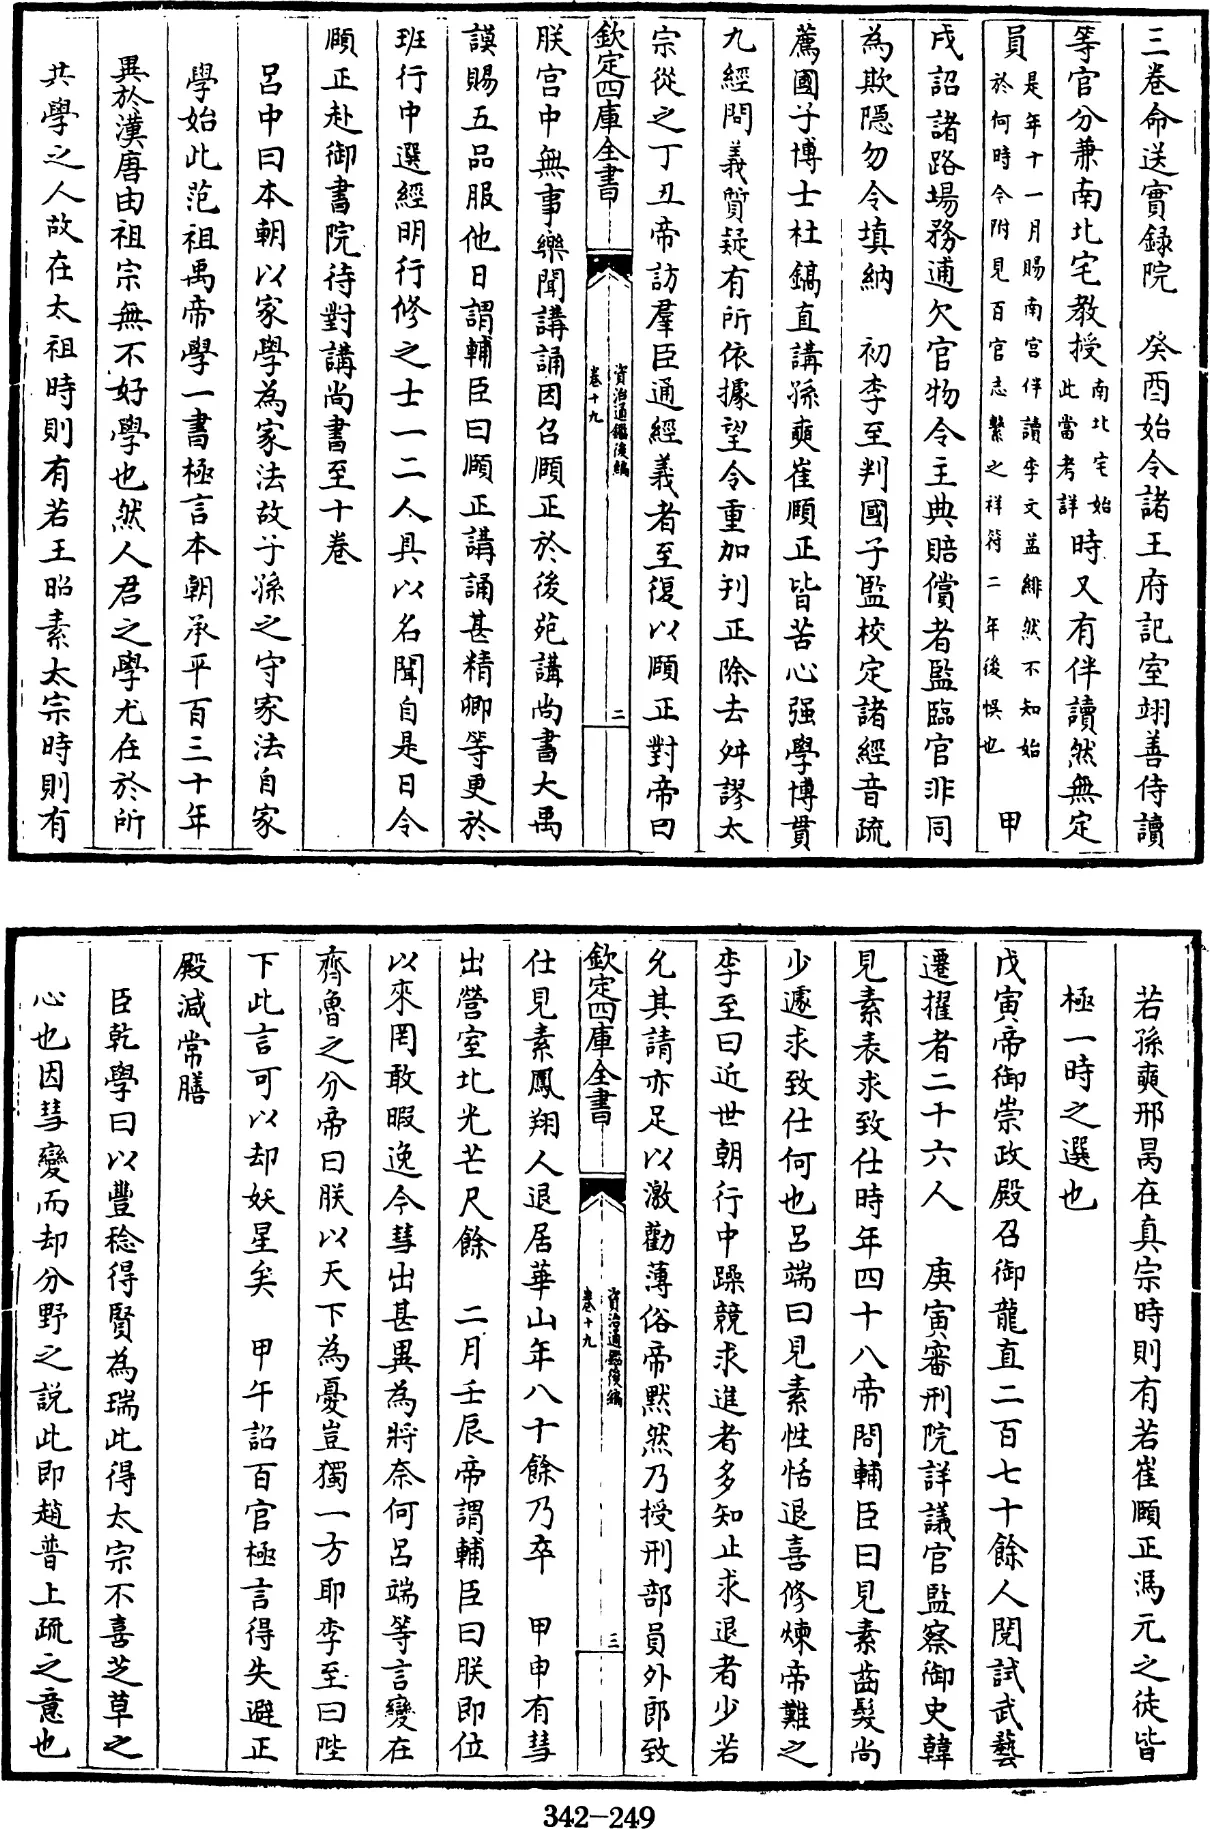 三卷命送實錄院　癸酉始令諸王府記室翊善侍讀
等官分兼南北宅教授南北宅始此當考詳時又有伴讀然無定
員是年十一月賜南宫伴讀李文益緋然不知始於何時令附見百官志繫之祥符二年後悞也　甲
戌詔諸路場務逋欠官物令主典賠償者監臨官非同
為欺隱勿令填納　初李至判國子監校定諸經音疏
薦國子博士杜鎬直講孫奭崔頥正皆苦心强學博貫
九經問義質疑有所依據望令重加刋正除去舛謬太
宗從之丁丑帝訪羣臣通經義者至復以頥正對帝曰
欽定四庫全書
資治通鑑後編
卷十九
二
朕宫中無事樂聞講誦因召頥正於後苑講尚書大禹
謨賜五品服他日謂輔臣曰頥正講誦甚精卿等更於
班行中選經明行修之士一二人具以名聞自是日令
頥正赴御書院待對講尚書至十卷
吕中曰本朝以家學為家法故子孫之守家法自家
學始此范祖禹帝學一書極言本朝承平百三十年
異於漢唐由祖宗無不好學也然人君之學尤在於所
共學之人故在太祖時則有若王昭素太宗時則有
若孫奭邢昺在真宗時則有若崔頥正馮元之徒皆
極一時之選也
戊寅帝御崇政殿召御龍直二百七十餘人閱試武藝
遷擢者二十六人　庚寅審刑院詳議官監察御史韓
見素表求致仕時年四十八帝問輔臣曰見素齒髮尚
少遽求致仕何也吕端曰見素性恬退喜修煉帝難之
李至曰近世朝行中躁競求進者多知止求退者少若
允其請亦足以激勸薄俗帝默然乃授刑部員外郎致
欽定四庫全書
資治通鑑後編
卷十九
三
仕見素鳳翔人退居華山年八十餘乃卒　甲申有彗
出營室北光芒尺餘　二月壬辰帝謂輔臣曰朕即位
以來罔敢暇逸今彗出甚異為將奈何吕端等言變在
齊魯之分帝曰朕以天下為憂豈獨一方耶李至曰陛
下此言可以却妖星矣　甲午詔百官極言得失避正
殿減常膳
臣乾學曰以豐稔得賢為瑞此得太宗不喜芝草之
心也因彗變而却分野之説此即趙普上疏之意也
342-249